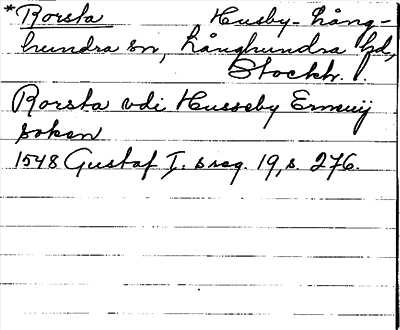 *Rorsta Husby-Lång-
hundra sn, Långhundra hd,
Stockh. l.
Rorsta vdi Husseby Ermuij
soken
1548 Gustaf I:s reg. 19, s. 276.